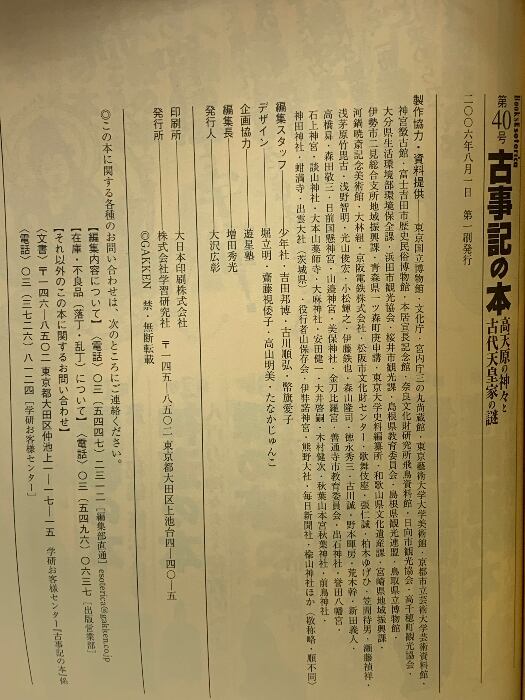 Books Esoterica
第40号
古事記の本
高天原の神々と
古代天皇家の謎
二〇〇六年八月一日　第一刷発行
製作協力・資料提供　東京国立博物館・文化庁・宮内庁三の丸尚蔵館・東京藝術大学大学美術館・京都市立芸術大学芸術資料館・
神宮徴古館・富士吉田市歴史民俗博物館・本居宣長記念館・奈良文化財研究所飛鳥資料館・日向市観光協会・高千穂町観光協会・
大分県生活環境部環境保全課・浜田市観光協会・桜井市観光課・島根県教育委員会・島根県観光連盟・鳥取県立博物館・
伊勢市二見総合支所地域振興課・青森県一ツ森町庚申講・東京大学史料編纂所・和歌山県文化遺産課・宮崎県地域振興課・
河鍋暁斎記念美術館・大林組・京阪電鉄株式会社・松阪市文化財センター・歌舞伎座・張仁誠・柏木ゆげひ・笠間待男・瀬藤禎祥・
浅茅原竹毘古・浅野智明・光山俊宏・小松輝之・伊藤鉄也・森山隆司・徳永秀三・古川誠・野本暉房・荒木幹・新田義人・
高橋昇・森田敬三・日前国懸神宮・山邊神宮・美保神社・金刀比羅宮・善通寺市教育委員会・出石神社・誉田八幡宮・
石上神宮・談山神社・大本山薬師寺・大麻神社・安田健一・大井啓嗣・木村健次・秋葉山本宮秋葉神社・前鳥神社・
神田神社・蚶満寺・出雲大社（茨城県）・役行者山保存会・伊弉諾神宮・熊野大社・毎日新聞社・檜山神社ほか（敬称略・順不同）
編集スタッフ　少年社・吉田邦博・古川順弘・幣旗愛子
デザイン　堀立明・齋藤視倭子・高山明美・たなかじゅんこ
企画協力　遊星塾
編集長　増田秀光
発行人　大沢広彰
印刷所　大日本印刷株式会社
発行所　株式会社学習研究社　〒一四五―八五〇二　東京都大田区上池台四―四〇―五
©GAKKEN　禁・無断転載
◎この本に関する各種のお問い合わせは、次のところにご連絡ください。
【編集内容について】〈電話〉〇三（五四四七）二三一二［編集部直通］esoterica@gakken.co.jp
【在庫・不良品（落丁・乱丁）について】〈電話〉〇三（五四九六）〇六三七［出版営業部］
【それ以外のこの本に関するお問い合わせ】
〈文書〉〒一四六―八五〇二　東京都大田区仲池上一―一七―一五　学研お客様センター『古事記の本』係
〈電話〉〇三（三七二六）八一二四［学研お客様センター］